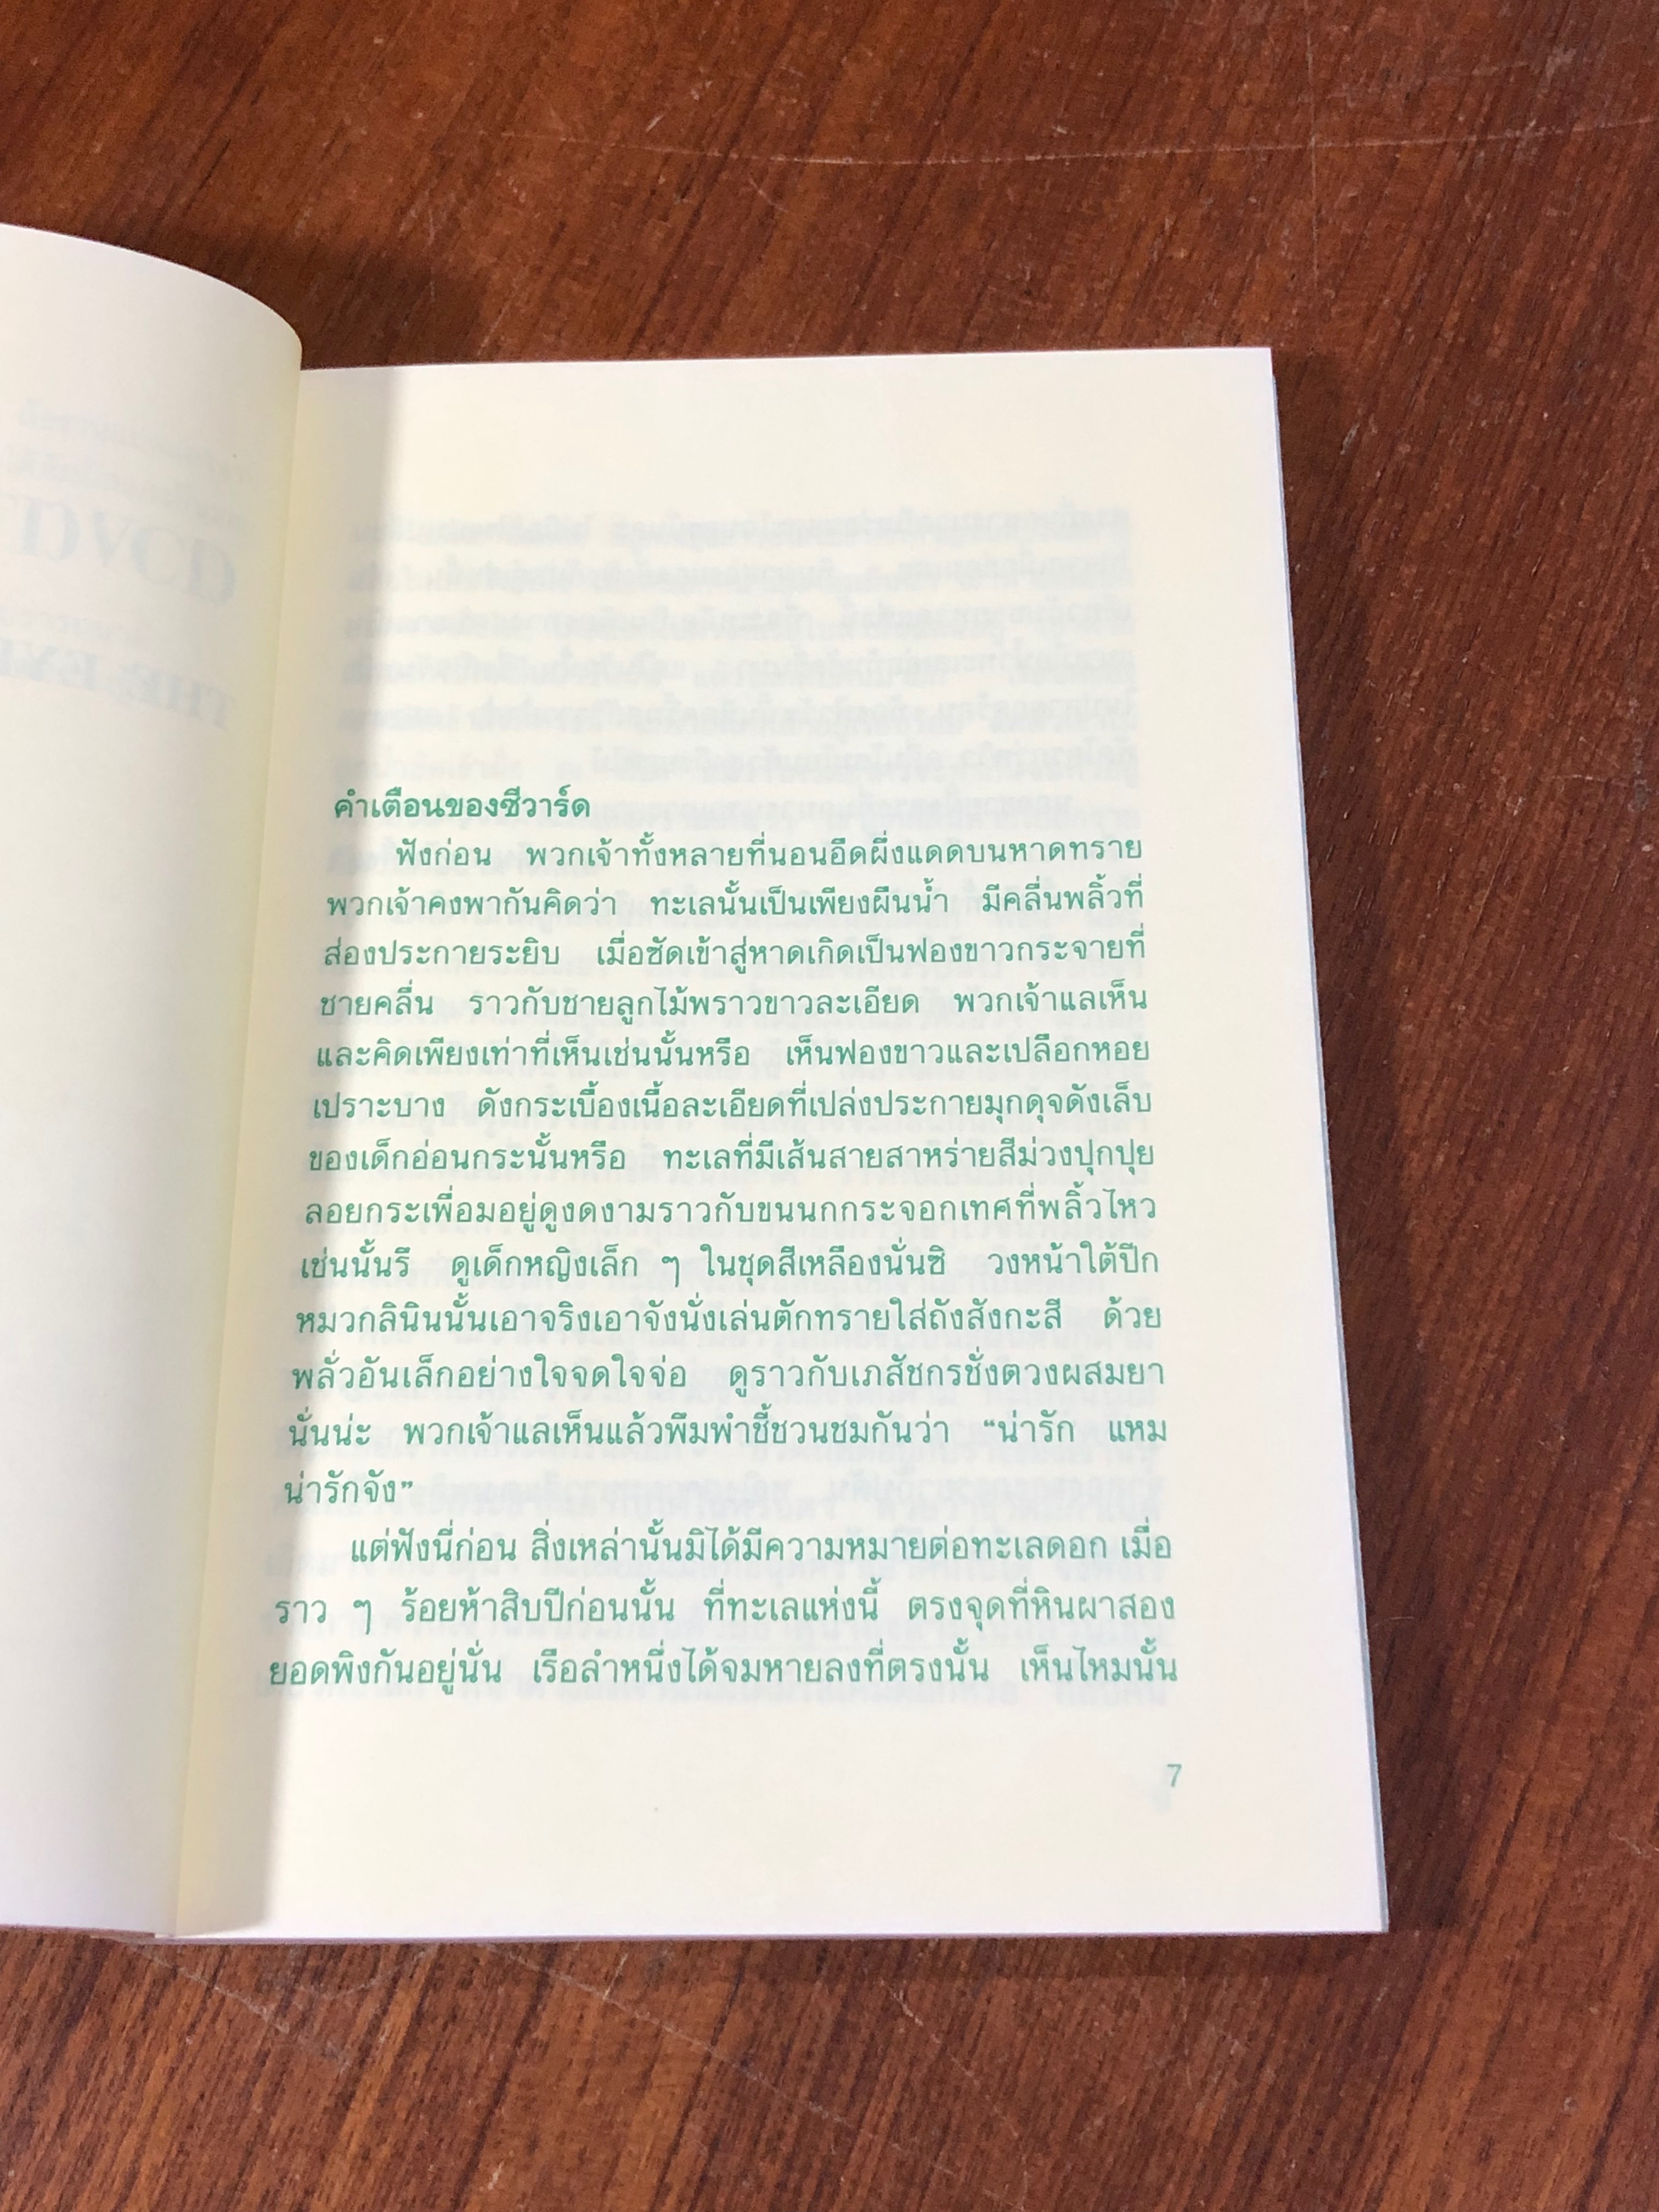 คำเตือนของซีวาร์ด
ฟังก่อน พวกเจ้าทั้งหลายที่นอนอืดผึ่งแดดบนหาดทราย
พวกเจ้าคงพากันคิดว่า ทะเลนั้นเป็นเพียงผืนน้ำ มีคลื่นพลิ้วที่
ส่องประกายระยิบ เมื่อซัดเข้าสู่หาดเกิดเป็นฟองขาวกระจายที่
ชายคลื่น ราวกับชายลูกไม้พราวขาวละเอียด พวกเจ้าแลเห็น
และคิดเพียงเท่าที่เห็นเช่นนั้นหรือ เห็นฟองขาวและเปลือกหอย
เปราะบาง ดังกระเบื้องเนื้อละเอียดที่เปล่งประกายมุกดุจดังเล็บ
ของเด็กอ่อนกระนั้นหรือ ทะเลที่มีเส้นสายสาหร่ายสีม่วงปุกปุย
ลอยกระเพื่อมอยู่ดูงดงามราวกับขนนกกระจอกเทศที่พลิ้วไหว
เช่นนั้นรึ ดูเด็กหญิงเล็ก ๆ ในชุดสีเหลืองนั่นซิ วงหน้าใต้ปีก
หมวกลินินนั้นเอาจริงเอาจังนั่งเล่นตักทรายใส่ถังสังกะสี ด้วย
พลั่วอันเล็กอย่างใจจดใจจ่อ ดูราวกับเภสัชกรชั่งตวงผสมยา
นั่นน่ะ พวกเจ้าแลเห็นแล้วพึมพำชี้ชวนชมกันว่า “น่ารัก แหม
น่ารักจัง”
แต่ฟังนี่ก่อน สิ่งเหล่านั้นมิได้มีความหมายต่อทะเลดอก เมื่อ
ราว ๆ ร้อยห้าสิบปีก่อนนั้น ที่ทะเลแห่งนี้ ตรงจุดที่หินผาสอง
ยอดพิงกันอยู่นั่น เรือลำหนึ่งได้จมหายลงที่ตรงนั้น เห็นไหมนั้น
7